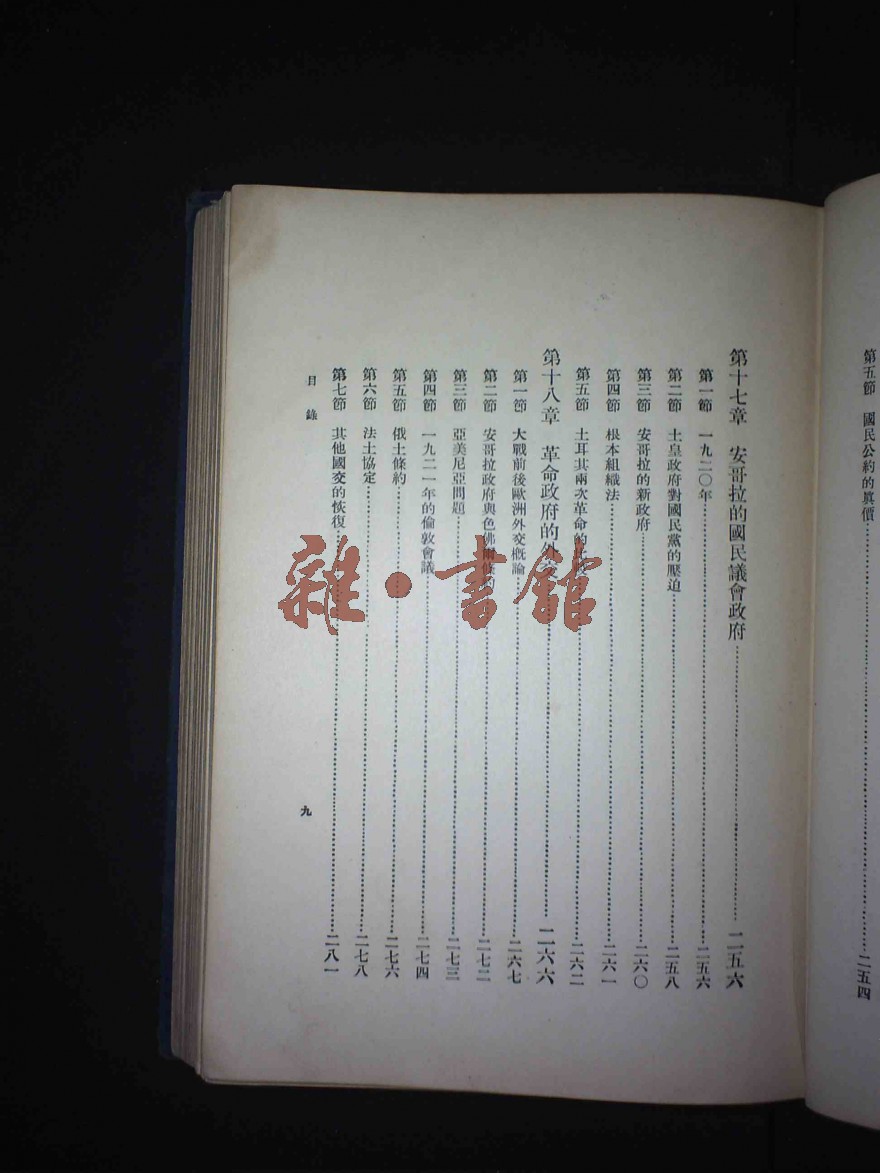 第五節 國民公約的眞價……二五四
第十七章 安哥拉的國民議會政府……二五六
第一節 一九二〇年……二五六
第二節 土皇政府對國民黨的壓迫……二五八
第三節 安哥拉的新政府……二六〇
第四節 根本組織法……二六一
第五節 土耳其兩次革命的……二六二
第十八章 革命政府的外……二六六
第一節 大戰前後歐洲外交概論……二六七
第二節 安哥拉政府與色佛爾條約……二七二
第三節 亞美尼亞問題……二七三
第四節 一九二一年的倫敦會議……二七四
第五節 俄土條約……二七六
第六節 法土協定……二七八
第七節 其他國交的恢復……二八一
目錄
九
雜·書館